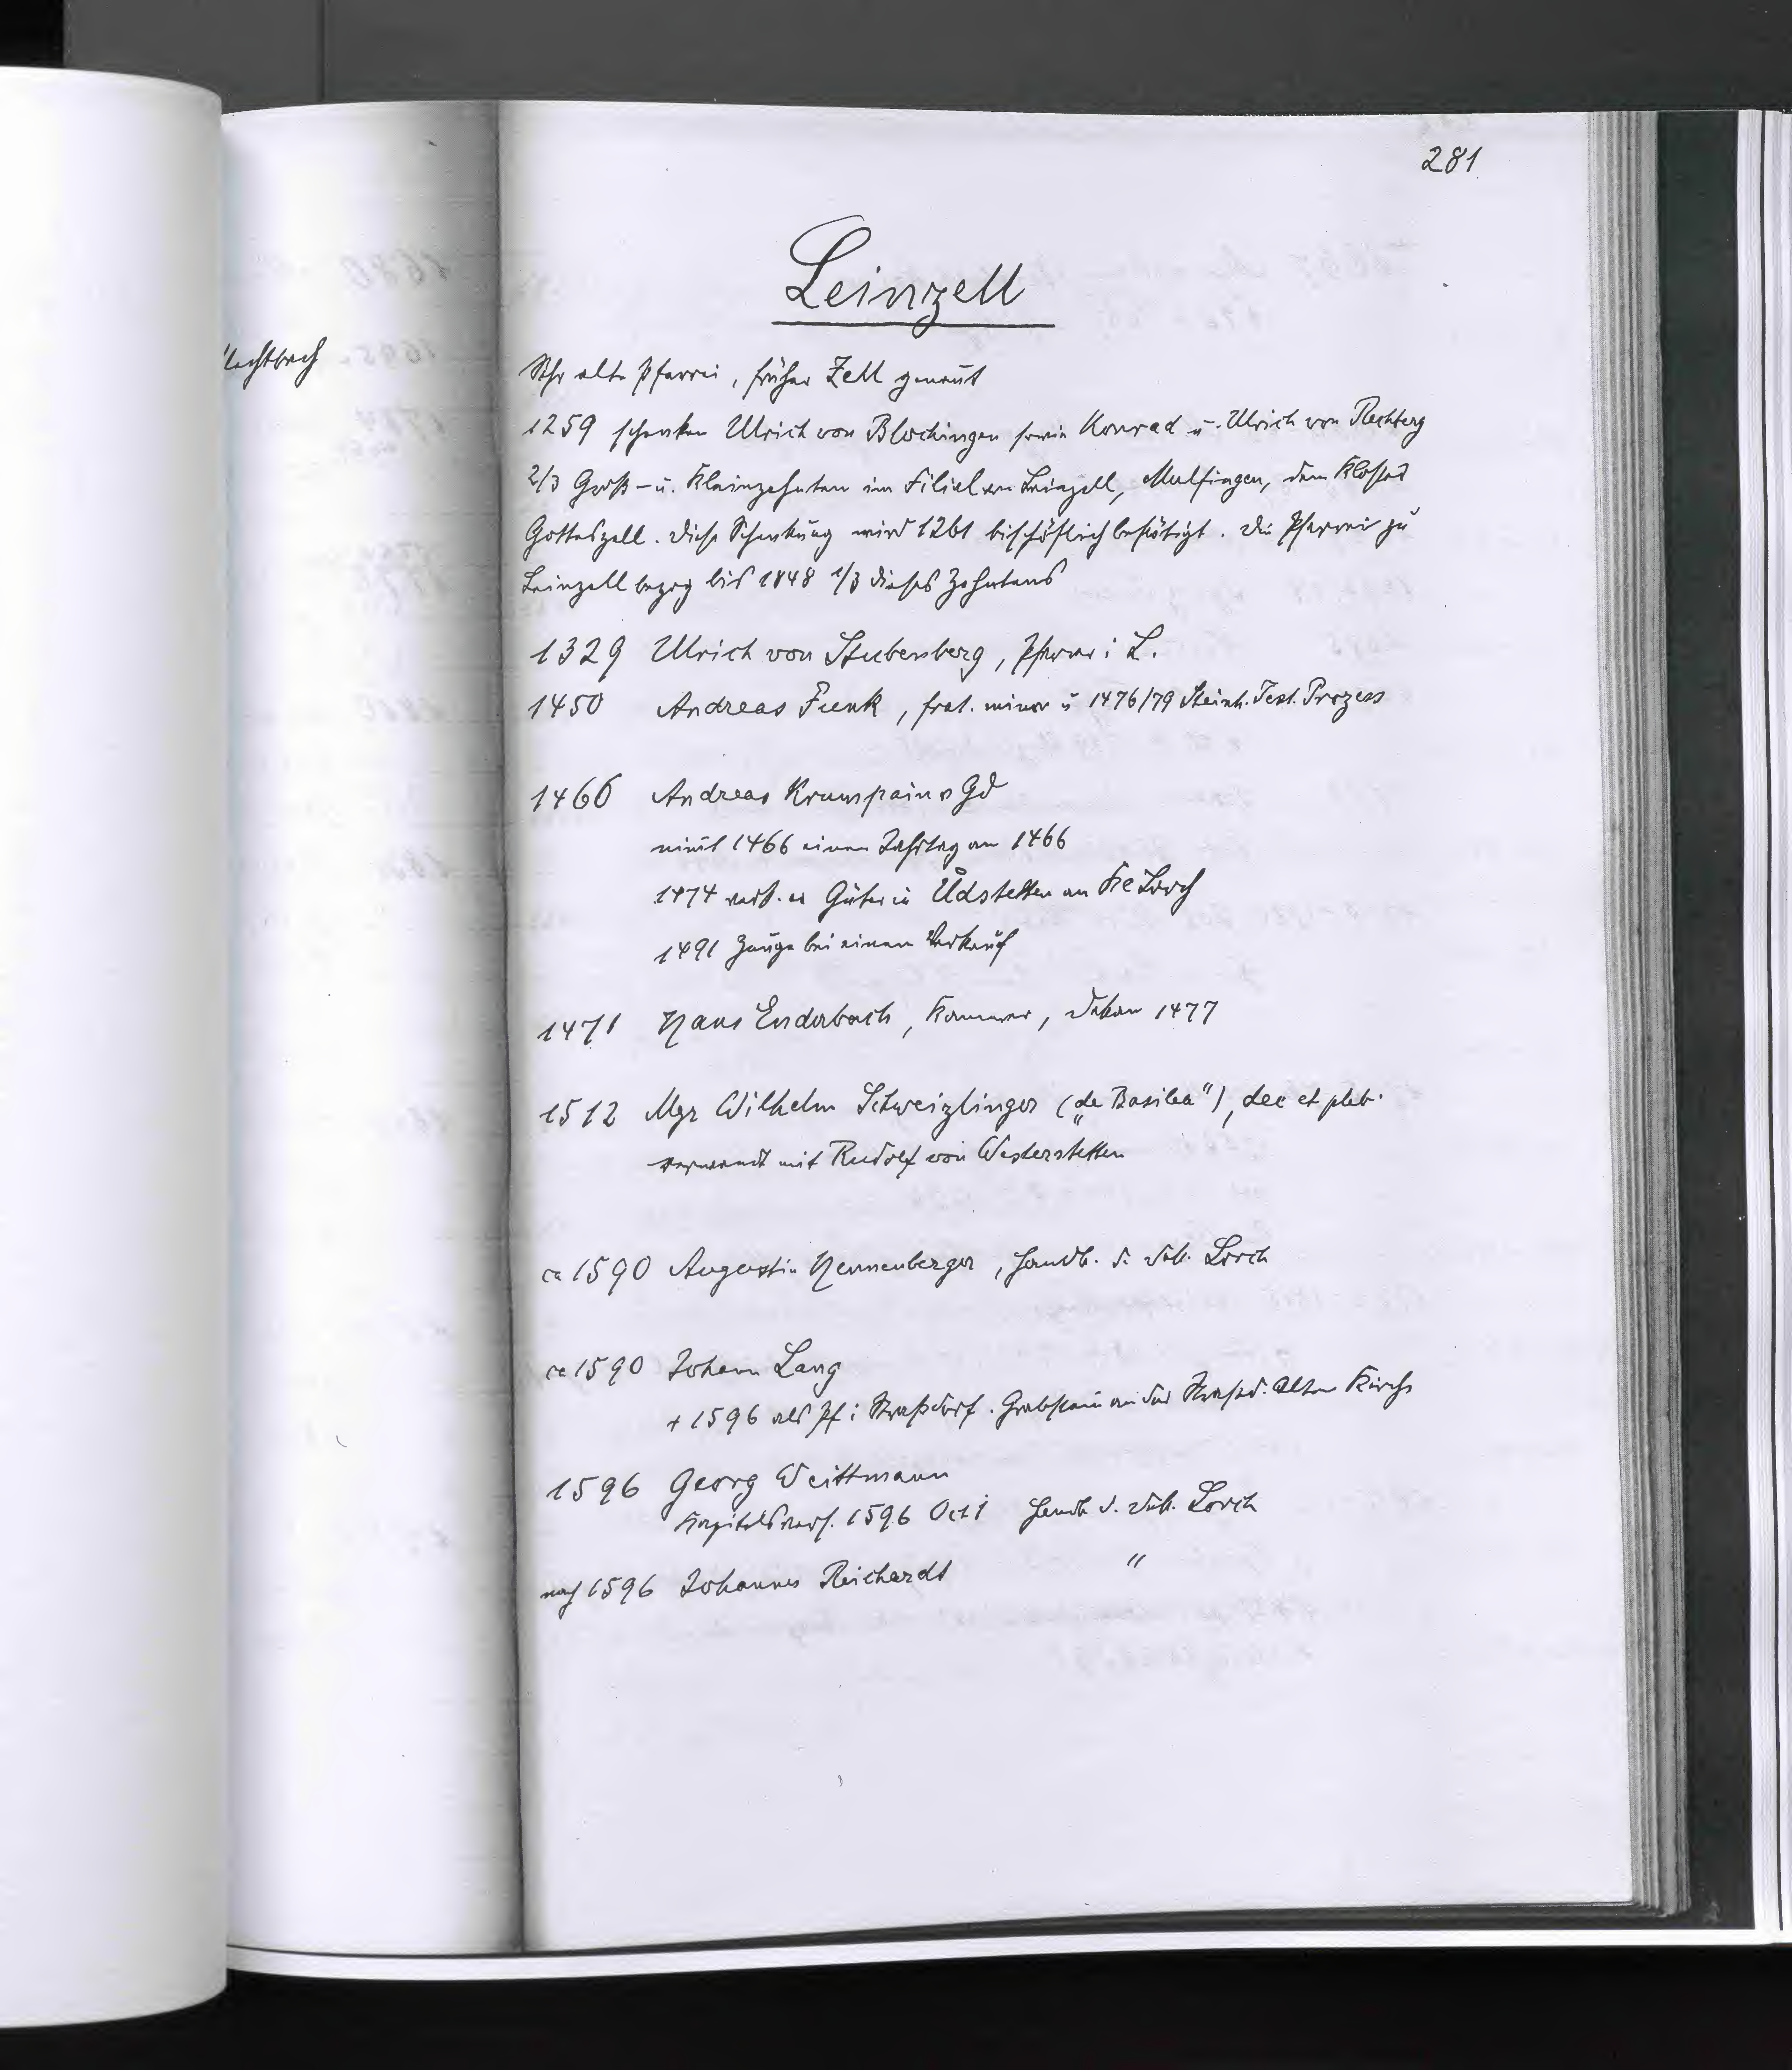 281
Leinzell
Sehr alte Pfarrei, früher Zell genan̄t
1259 schenken Ulrich von Blochingen sowie Konrad u. Ulrich von Rechberg
2/3 Groß- u. Kleinzehnten im Filial von Leinzell, Mulfingen, dem Kloster
Gotteszell. Diese Schenkung wird 1261 bischöflich bestätigt. Die Pfarrei zu
Leinzell bezog bis 1848 1/3 dieses Zehntens
1329 Ulrich von Stubenberg, Pfarrer i L.
1450 Andreas Funk, frat. minor u 1476/79 Steinh. Test. Prozess
1466 Andreas Krumpain v Gd
nim̄t 1466 einen Jahrtag an 1466
1474 verk. er Güter in Ůdstetten an Kl Lorch
1491 Zeuge bei einem Verkauf
1471 Hans Enderbach, Kammerer, Dekan 1477
1512 Mgr Wilhelm Schweizlinger („de Basilea"), dec et pleb.
verwandt mit Rudolf von Westerstetten
ca 1590 Augustin Hennenberger, Handb. d. Dek. Lorch
ca 1590 Johann Lang
+ 1596 als Pf i Straßdorf. Grabstein an der Straßd. alten Kirche
1596 Georg Weittmann
Kapitelsverz. 1596 Oct 1 Handb d. Dek. Lorch
nach 1596 Johannes Reichardt "